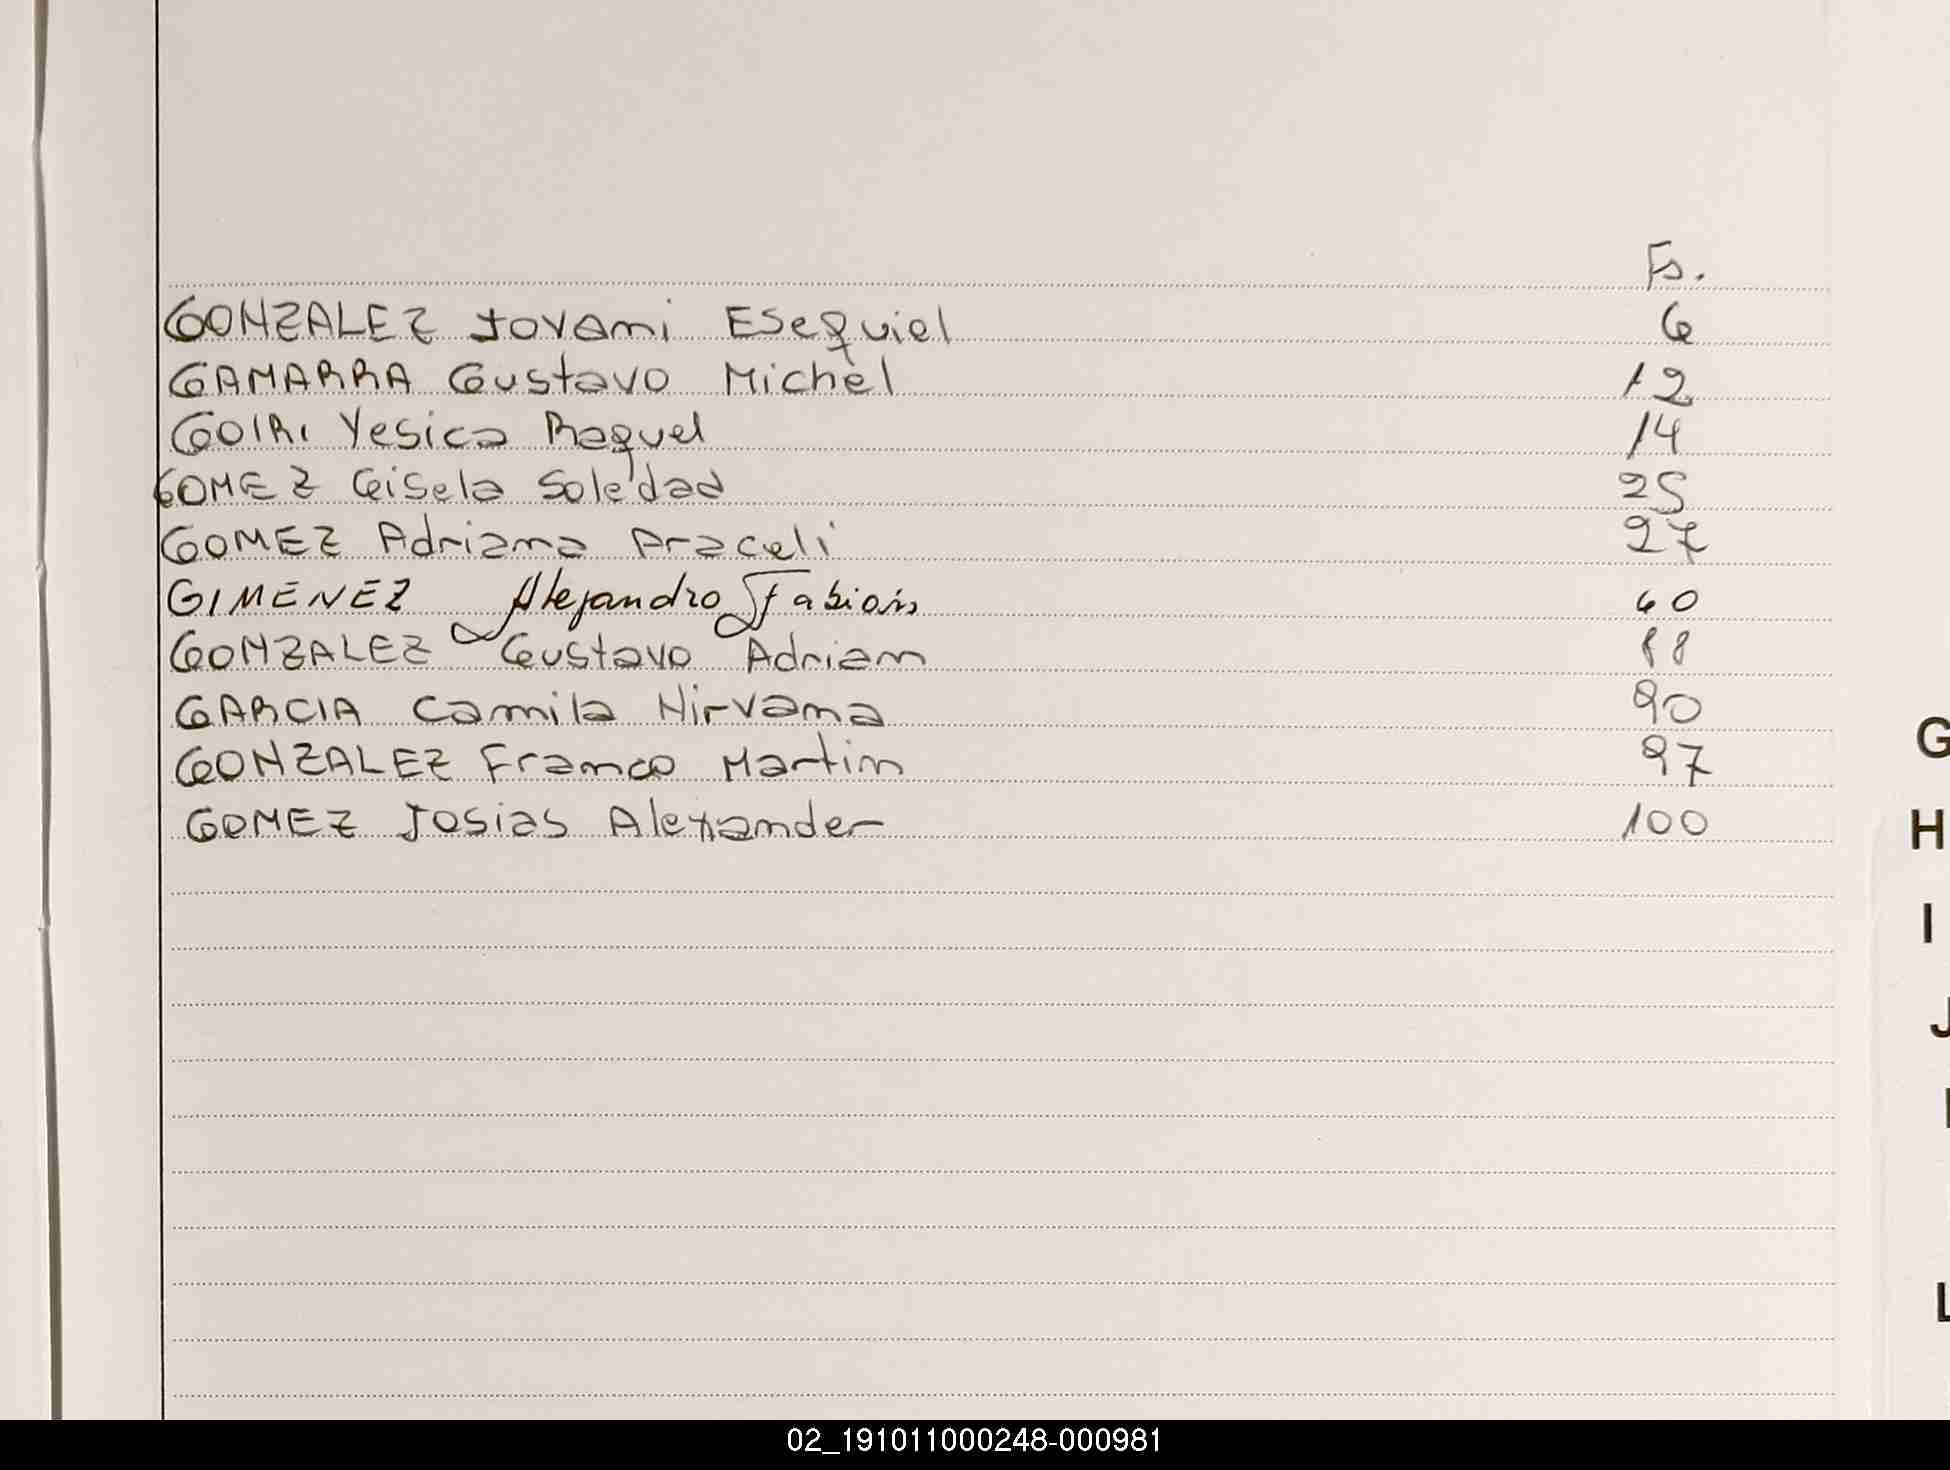 Fs.
GONZALEZ Jovani Esequiel 6
GAMARRA Gustavo Michel 12
GOIRI Yesica Raquel 14
GOMEZ Gisela Soledad 25
GOMEZ Adriana Araceli 27
GIMENEZ Alejandro Fabian 60
GONZALEZ Gustavo Adrian 88
GARCIA Camila Nirvana 90
GONZALEZ Franco Martin 97
GOMEZ Josias Alexander 100
G
H
I
J
L
02_191011000248-000981